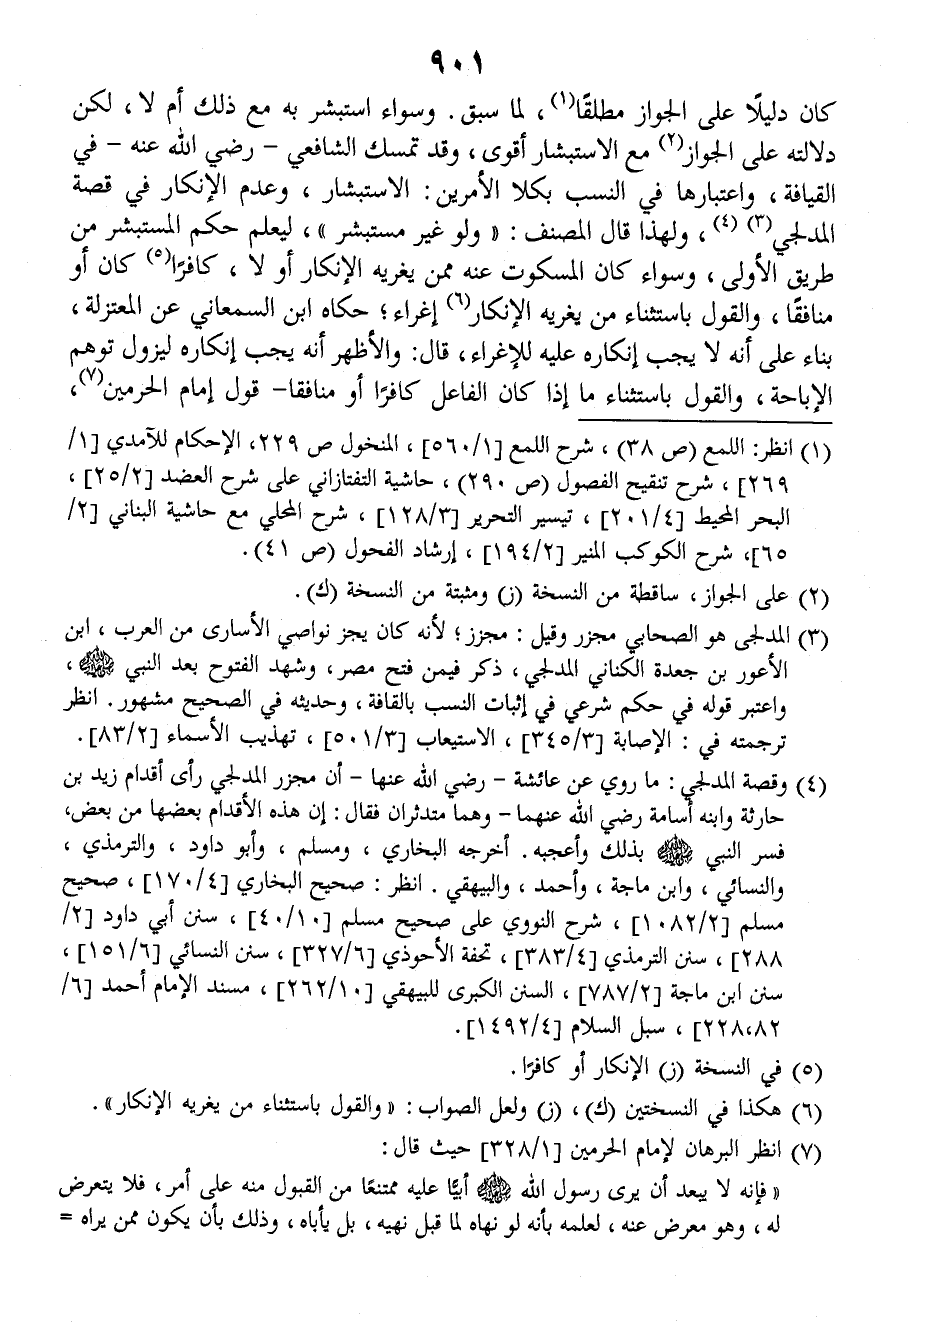 ٩٠١
كان دليلًا على الجواز مطلقًا(١)، لما سبق. وسواء استبشر به مع ذلك أم لا، لكن
دلالته على الجواز(٢) مع الاستبشار أقوى، وقد تمسك الشافعي - رضي الله عنه - في
القيافة، واعتبارها في النسب بكلا الأمرين: الاستبشار، وعدم الإنكار في قصة
المدلجي(٣) (٤)، ولهذا قال المصنف: «ولو غير مستبشر»، ليعلم حكم المستبشر من
طريق الأولى، وسواء كان المسكوت عنه ممن يغريه الإنكار أو لا، كافرًا(٥) كان أو
منافقًا، والقول باستثناء من يغريه الإنكار(٦) إغراء؛ حكاه ابن السمعاني عن المعتزلة،
بناء على أنه لا يجب إنكاره عليه للإغراء، قال: والأظهر أنه يجب إنكاره ليزول توهم
الإباحة، والقول باستثناء ما إذا كان الفاعل كافرًا أو منافقا- قول إمام الحرمين(٧)،
(١) انظر: اللمع (ص ٣٨)، شرح اللمع [٥٦٠/١]، المنخول ص ٢٢٩، الإحكام للآمدي [١/
٢٦٩]، شرح تنقيح الفصول (ص ٢٩٠)، حاشية التفتازاني على شرح العضد [٢٥/٢]،
البحر المحيط [٢٠١/٤]، تيسير التحرير [١٢٨/٣]، شرح المحلي مع حاشية البناني [٢/
٦٥]، شرح الكوكب المنير [١٩٤/٢]، إرشاد الفحول (ص ٤١).
(٢) على الجواز، ساقطة من النسخة (ز) ومثبتة من النسخة (ك).
(٣) المدلجى هو الصحابي مجزر وقيل: مجزز؛ لأنه كان يجز نواصي الأسارى من العرب، ابن
الأعور بن جعدة الكناني المدلجي، ذكر فيمن فتح مصر، وشهد الفتوح بعد النبي ﷺ،
واعتبر قوله في حكم شرعي في إثبات النسب بالقافة، وحديثه في الصحيح مشهور. انظر
ترجمته في: الإصابة [٣٤٥/٣]، الاستيعاب [٥٠١/٣]، تهذيب الأسماء [٨٣/٢].
(٤) وقصة المدلجي: ما روي عن عائشة - رضي الله عنها - أن مجزر المدلجي رأى أقدام زيد بن
حارثة وابنه أسامة رضي الله عنهما - وهما متدثران فقال: إن هذه الأقدام بعضها من بعض،
فسر النبي ﷺ بذلك وأعجبه. أخرجه البخاري، ومسلم، وأبو داود، والترمذي،
والنسائي، وابن ماجة، وأحمد، والبيهقي. انظر: صحيح البخاري [١٧٠/٤]، صحيح
مسلم [١٠٨٢/٢]، شرح النووي على صحيح مسلم [٤٠/١٠]، سنن أبي داود [٢/
٢٨٨]، سنن الترمذي [٣٨٣/٤]، تحفة الأحوذي [٣٢٧/٦]، سنن النسائي [١٥١/٦]،
سنن ابن ماجة [٧٨٧/٢]، السنن الكبرى للبيهقي [٢٦٢/١٠]، مسند الإمام أحمد [٦/
٢٢٨،٨٢]، سبل السلام [١٤٩٢/٤].
(٥) في النسخة (ز) الإنكار أو كافرًا.
(٦) هكذا في النسختين (ك)، (ز) ولعل الصواب: «والقول باستثناء من يغريه الإنكار».
(٧) انظر البرهان لإمام الحرمين [٣٢٨/١] حيث قال:
«فإنه لا يبعد أن يرى رسول الله ﷺ أبيًّا عليه ممتنعًا من القبول منه على أمر، فلا يتعرض
له، وهو معرض عنه، لعلمه بأنه لو نهاه لما قبل نهيه، بل يأباه، وذلك بأن يكون ممن يراه =